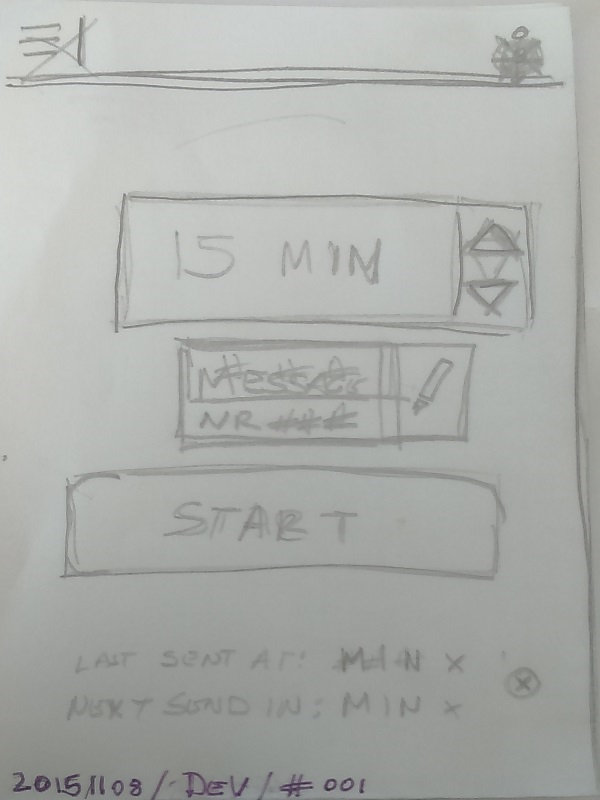 15 MIN
MESSAGE
NR ###
START
LAST SENT AT: MIN X
NEXT SEND IN: MIN X
20151108 / DEV / # 001